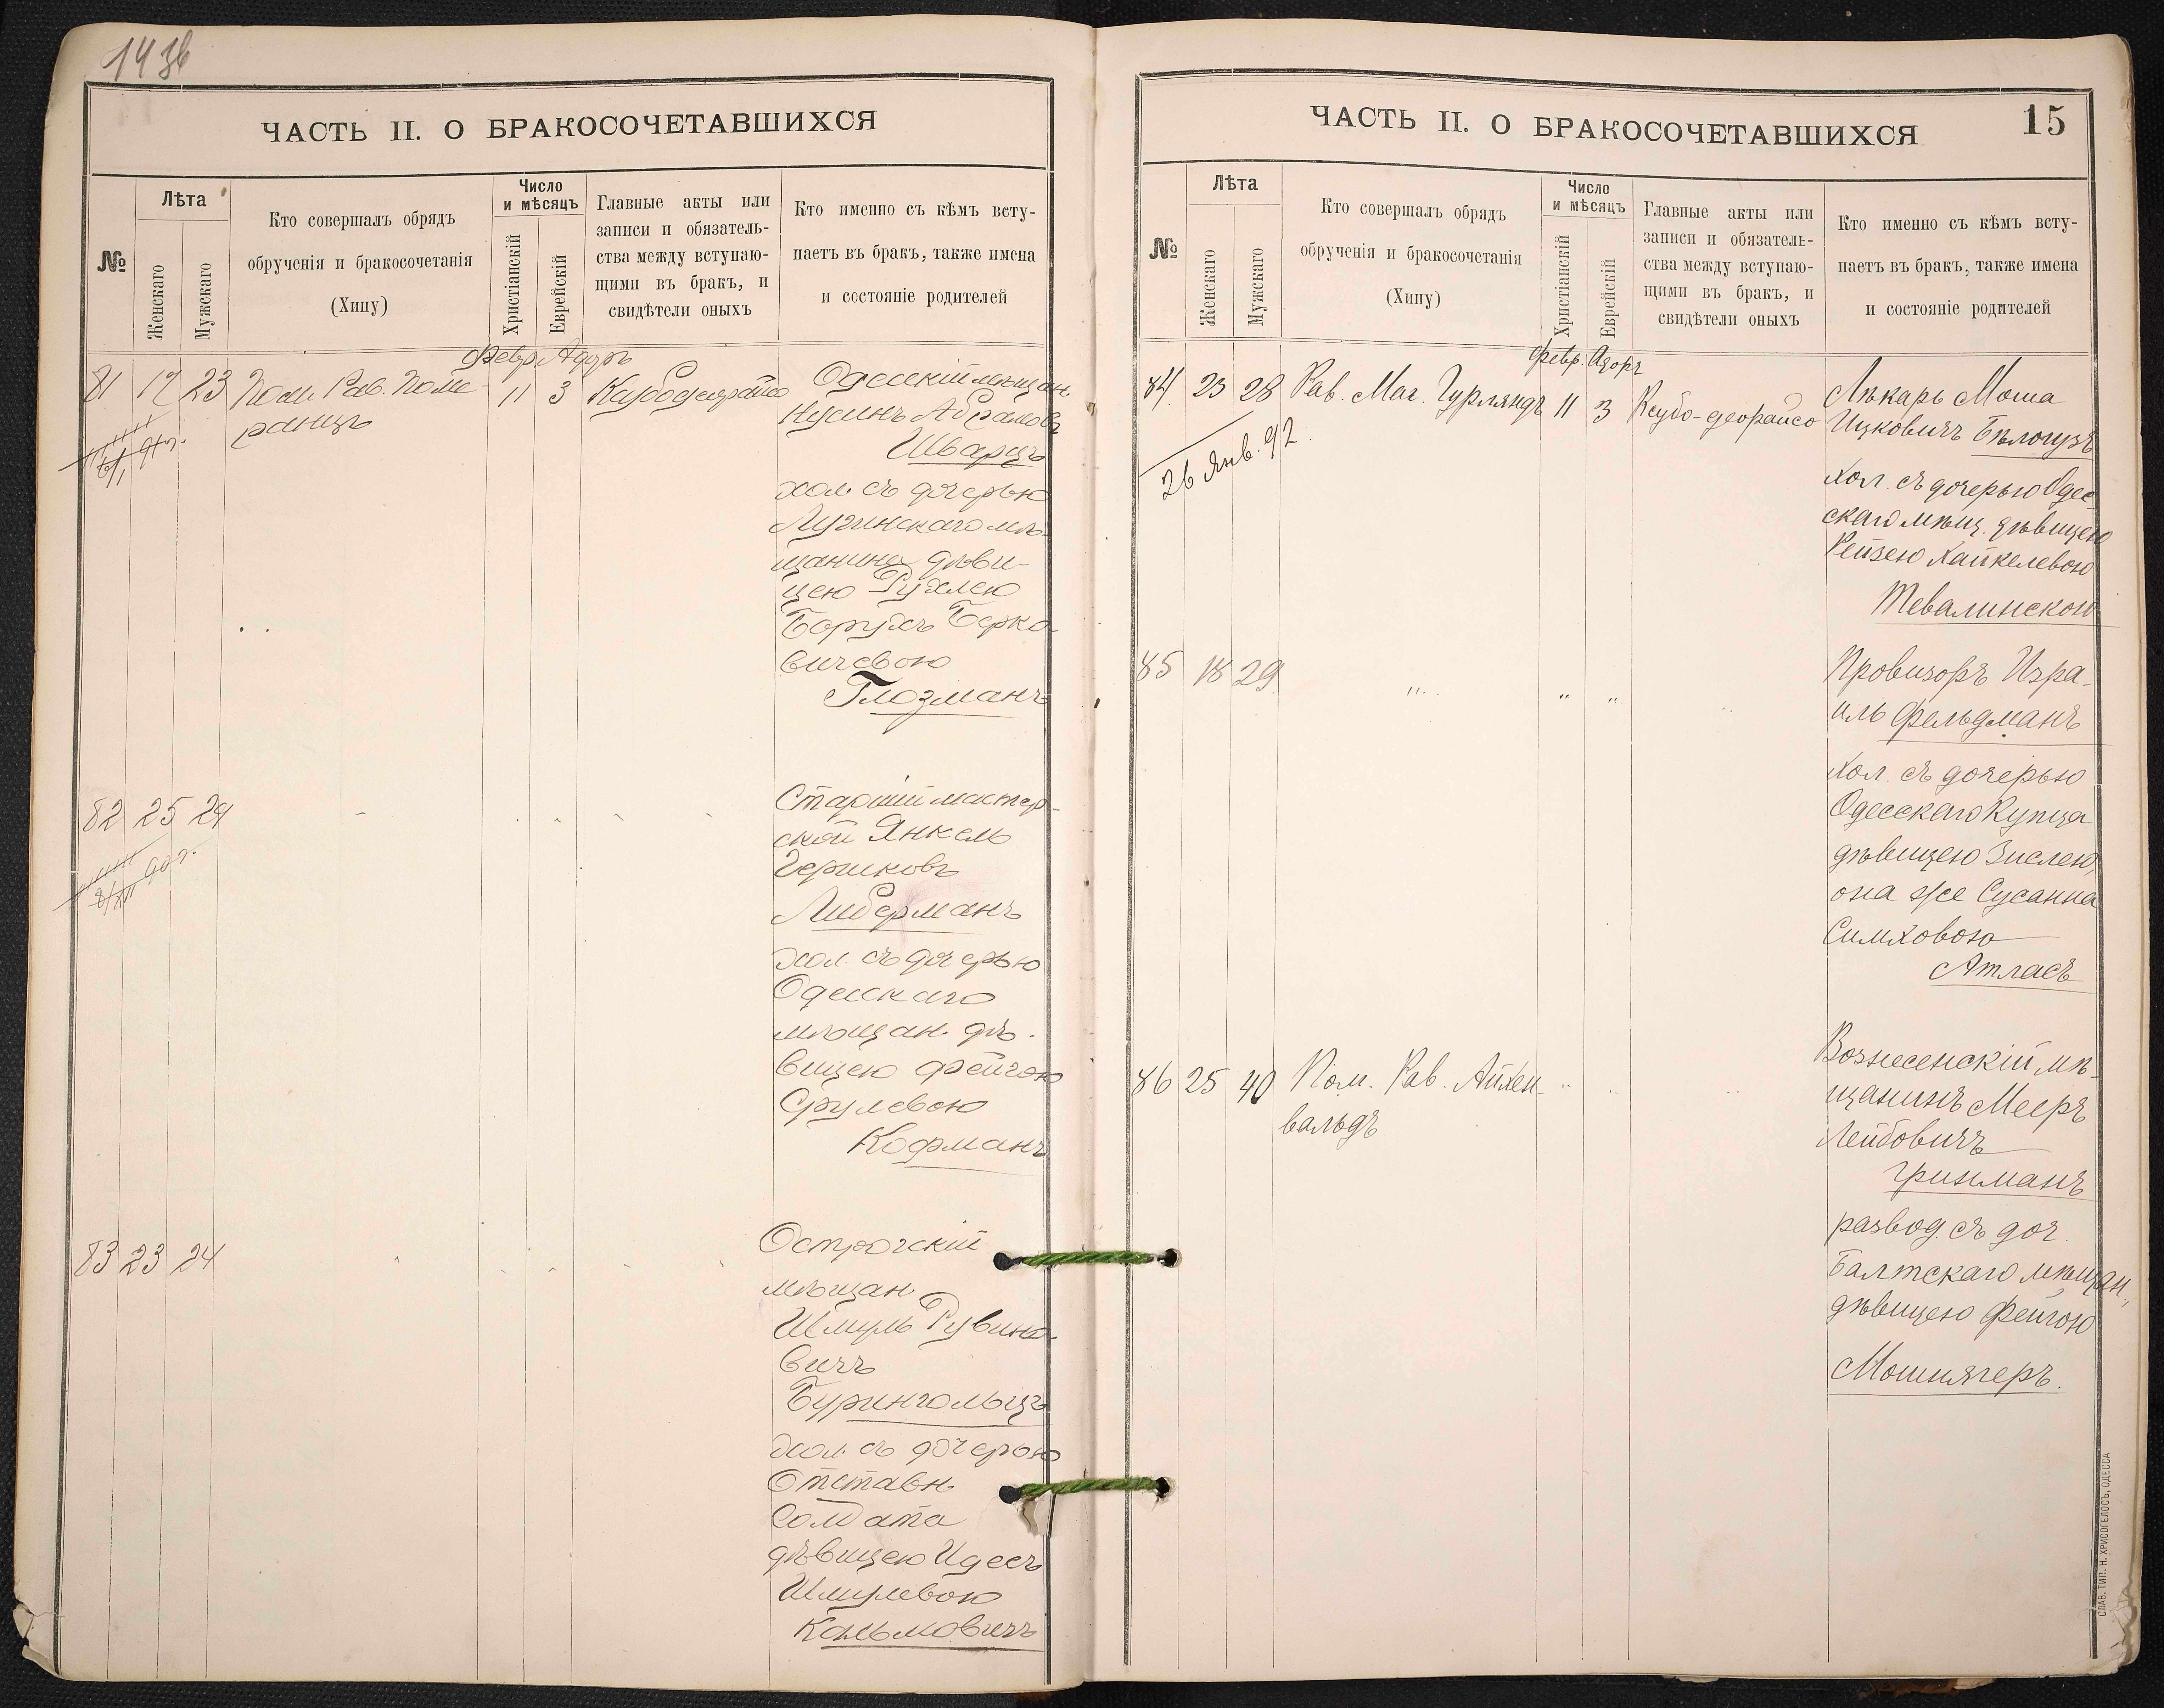 143б
ЧАСТЬ II. О БРАКОСОЧЕТАВШИХСЯ
№
Лѣта
Женскаго
Мужскаго
Кто совершалъ обрядъ
обрученія и бракосочетанія
(Хипу)
Число
и мѣсяцъ
Христіанскій
Еврейскій
Главные акты или
записи и обязатель-
ства между вступаю-
щими въ бракъ, и
свидѣтели оныхъ
Кто именно съ кѣмъ всту-
паетъ въ бракъ, также имена
и состояніе родителей
Февр. Адоръ
81 17 23 Пом. Рав. Поме-
ранцъ
11 3
Одесскій мѣщан.
Нусинъ Абрамовъ
Шварцъ
хол. съ дочерью
Лугинскаго мѣ-
щанина дѣви-
цею Рухлею
Борухъ Берко-
вичевою
Глозманъ
82 25 29
Старшій мастер-
ской Янкель
Гершковъ
Либерманъ
хол. съ дочерью
Одесскаго
мѣщан. дѣ-
вицею Фейгою
Срулевою
Кофманъ
83 23 24
Острогскій
мѣщан.
Шмуль Рувино-
вичъ
Бурингольцъ
хол. съ дочерью
Отставн.
Солдата
дѣвицею Идесъ
Шмулевою
Кальмовичъ
ЧАСТЬ II. О БРАКОСОЧЕТАВШИХСЯ
15
№
Лѣта
Женскаго
Мужскаго
Кто совершалъ обрядъ
обрученія и бракосочетанія
(Хипу)
Число
и мѣсяцъ
Христіанскій
Еврейскій
Главные акты или
записи и обязатель-
ства между вступаю-
щими въ бракъ, и
свидѣтели оныхъ
Кто именно съ кѣмъ всту-
паетъ въ бракъ, также имена
и состояніе родителей
Февр. Адоръ
84 23 28 Рав. Маг. Гурляндъ 11 3 Ксубо-деорайсо
26 Янв. 92.
Лѣкарь Моша
Ицковичъ Бѣлоцузъ
хол. съ дочерью Одес-
скаго мѣщ. дѣвицею
Рейзею Хайкелевою
Тевалинскою
85 18 29 " " "
Провизоръ Изра-
иль Фельдманъ
хол. съ дочерью
Одесскаго Купца
дѣвицею Зислею,
она же Сусанна
Симховою
Атласъ
86 25 40 Пом. Рав. Айхен-
вальдъ
Вознесенскій мѣ-
щанинъ Мееръ
Лейбовичъ
Гринманъ
развод. съ доч.
Балтскаго мѣщан.
дѣвицею Фейгою
Мошнягеръ.
СЛАВ. ТИП. Н. ХРИСОГЕЛОСЪ, ОДЕССА